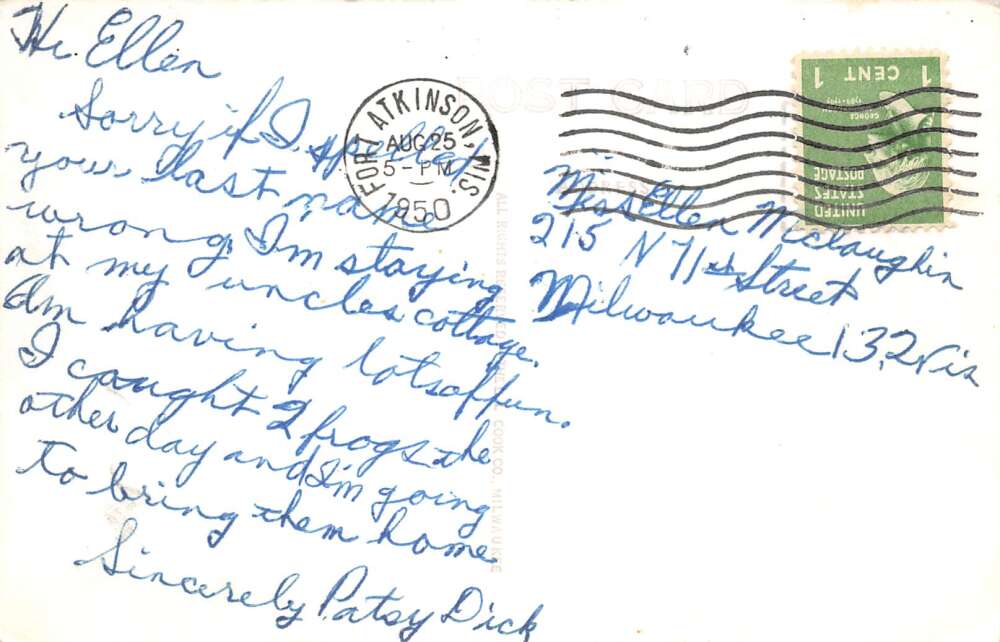 Hi Ellen
Sorry if I spelled
your last name
wrong. I'm staying
at my uncles cottage.
Am having lotsoffun.
I caught 2 frogs the
other day and I'm going
to bring them home
Sincerely Patsy Dick
POST CARD
FORT ATKINSON, WIS
AUG 25
5 - PM
1950
1 CENT 1
GEORGE
UNITED
STATES
POSTAGE
ADDRESS
Miss Ellen Mclaughin
215 N 71st Street
Milwaukee 13, Wis
ALL RIGHTS RESERVED COOK CO., MILWAUKEE